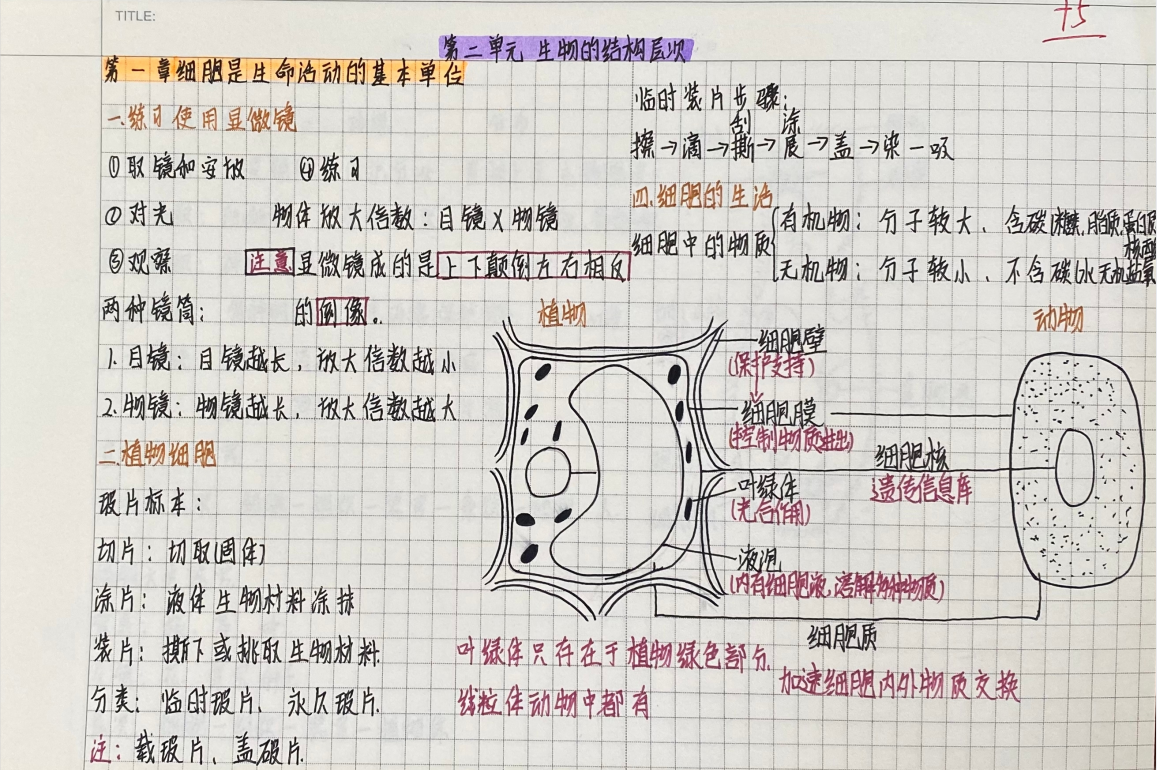 TITLE:
+5
第二单元 生物的结构层次
第一章细胞是生命活动的基本单位
一.练习使用显微镜
①取镜和安放 ④练习
②对光 物体放大倍数:目镜X物镜
③观察 注意显微镜成的是上下颠倒左右相反
两种镜筒: 的倒像。
1.目镜:目镜越长,放大倍数越小
2.物镜:物镜越长,放大倍数越大
二.植物细胞
玻片标本:
切片:切取(固体)
涂片:液体生物材料涂抹
装片:撕下或挑取生物材料.
分类:临时玻片.永久玻片.
注:载玻片、盖玻片.
临时装片步骤:
刮 涂
擦→滴→撕→展→盖→染-吸
四.细胞的生活
细胞中的物质
有机物:分子较大、含碳(糖类,脂质,蛋白质
核酸
无机物:分子较小、不含碳(水无机盐氧
植物
动物
细胞壁
(保护支持)
细胞膜
(控制物质进出)
细胞核
遗传信息库
叶绿体
(光合作用)
液泡
(内有细胞液,溶解多种物质)
细胞质
加速细胞内外物质交换
叶绿体只存在于植物绿色部分.
线粒体动物中都有